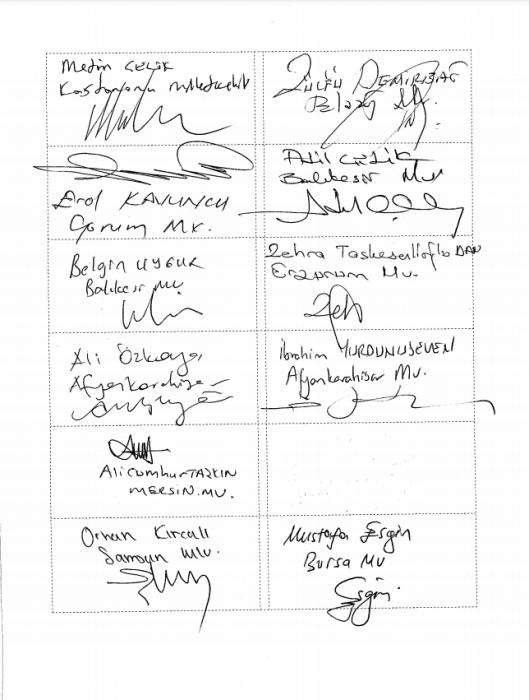 Metin ÇELİK
Kastamonu Milletvekili
Zülfü DEMİRBAĞ
Elazığ Mv.
Adil ÇELİK
Balıkesir Mv
Erol KAVUNCU
Çorum Mv.
Belgin UYGUR
Balıkesir Mv.
Zehra Taşkesenlioğlu BAN
Erzurum Mv.
Ali Özkaya
Afyonkarahisar
İbrahim YURDUNUSEVEN
Afyonkarahisar Mv.
Ali Cumhur TAŞKIN
MERSİN.MV.
Orhan Kırcalı
Samsun Mv.
Mustafa Esgin
Bursa Mv
Esgin